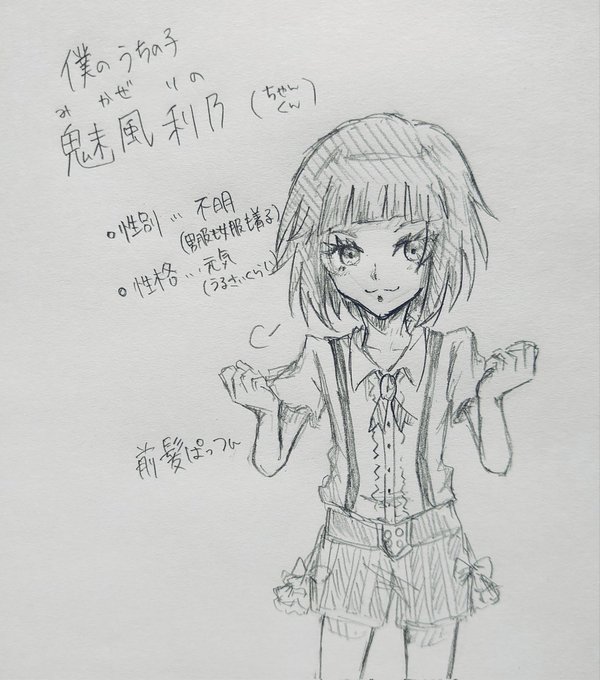 僕のうちの子
みかぜ りの
魅風利乃(ちゃん
くん)
。性別… 不明
(男服も女服も着る)
。性格… 元気
(うるさいくらい)
前髪ぱっつん